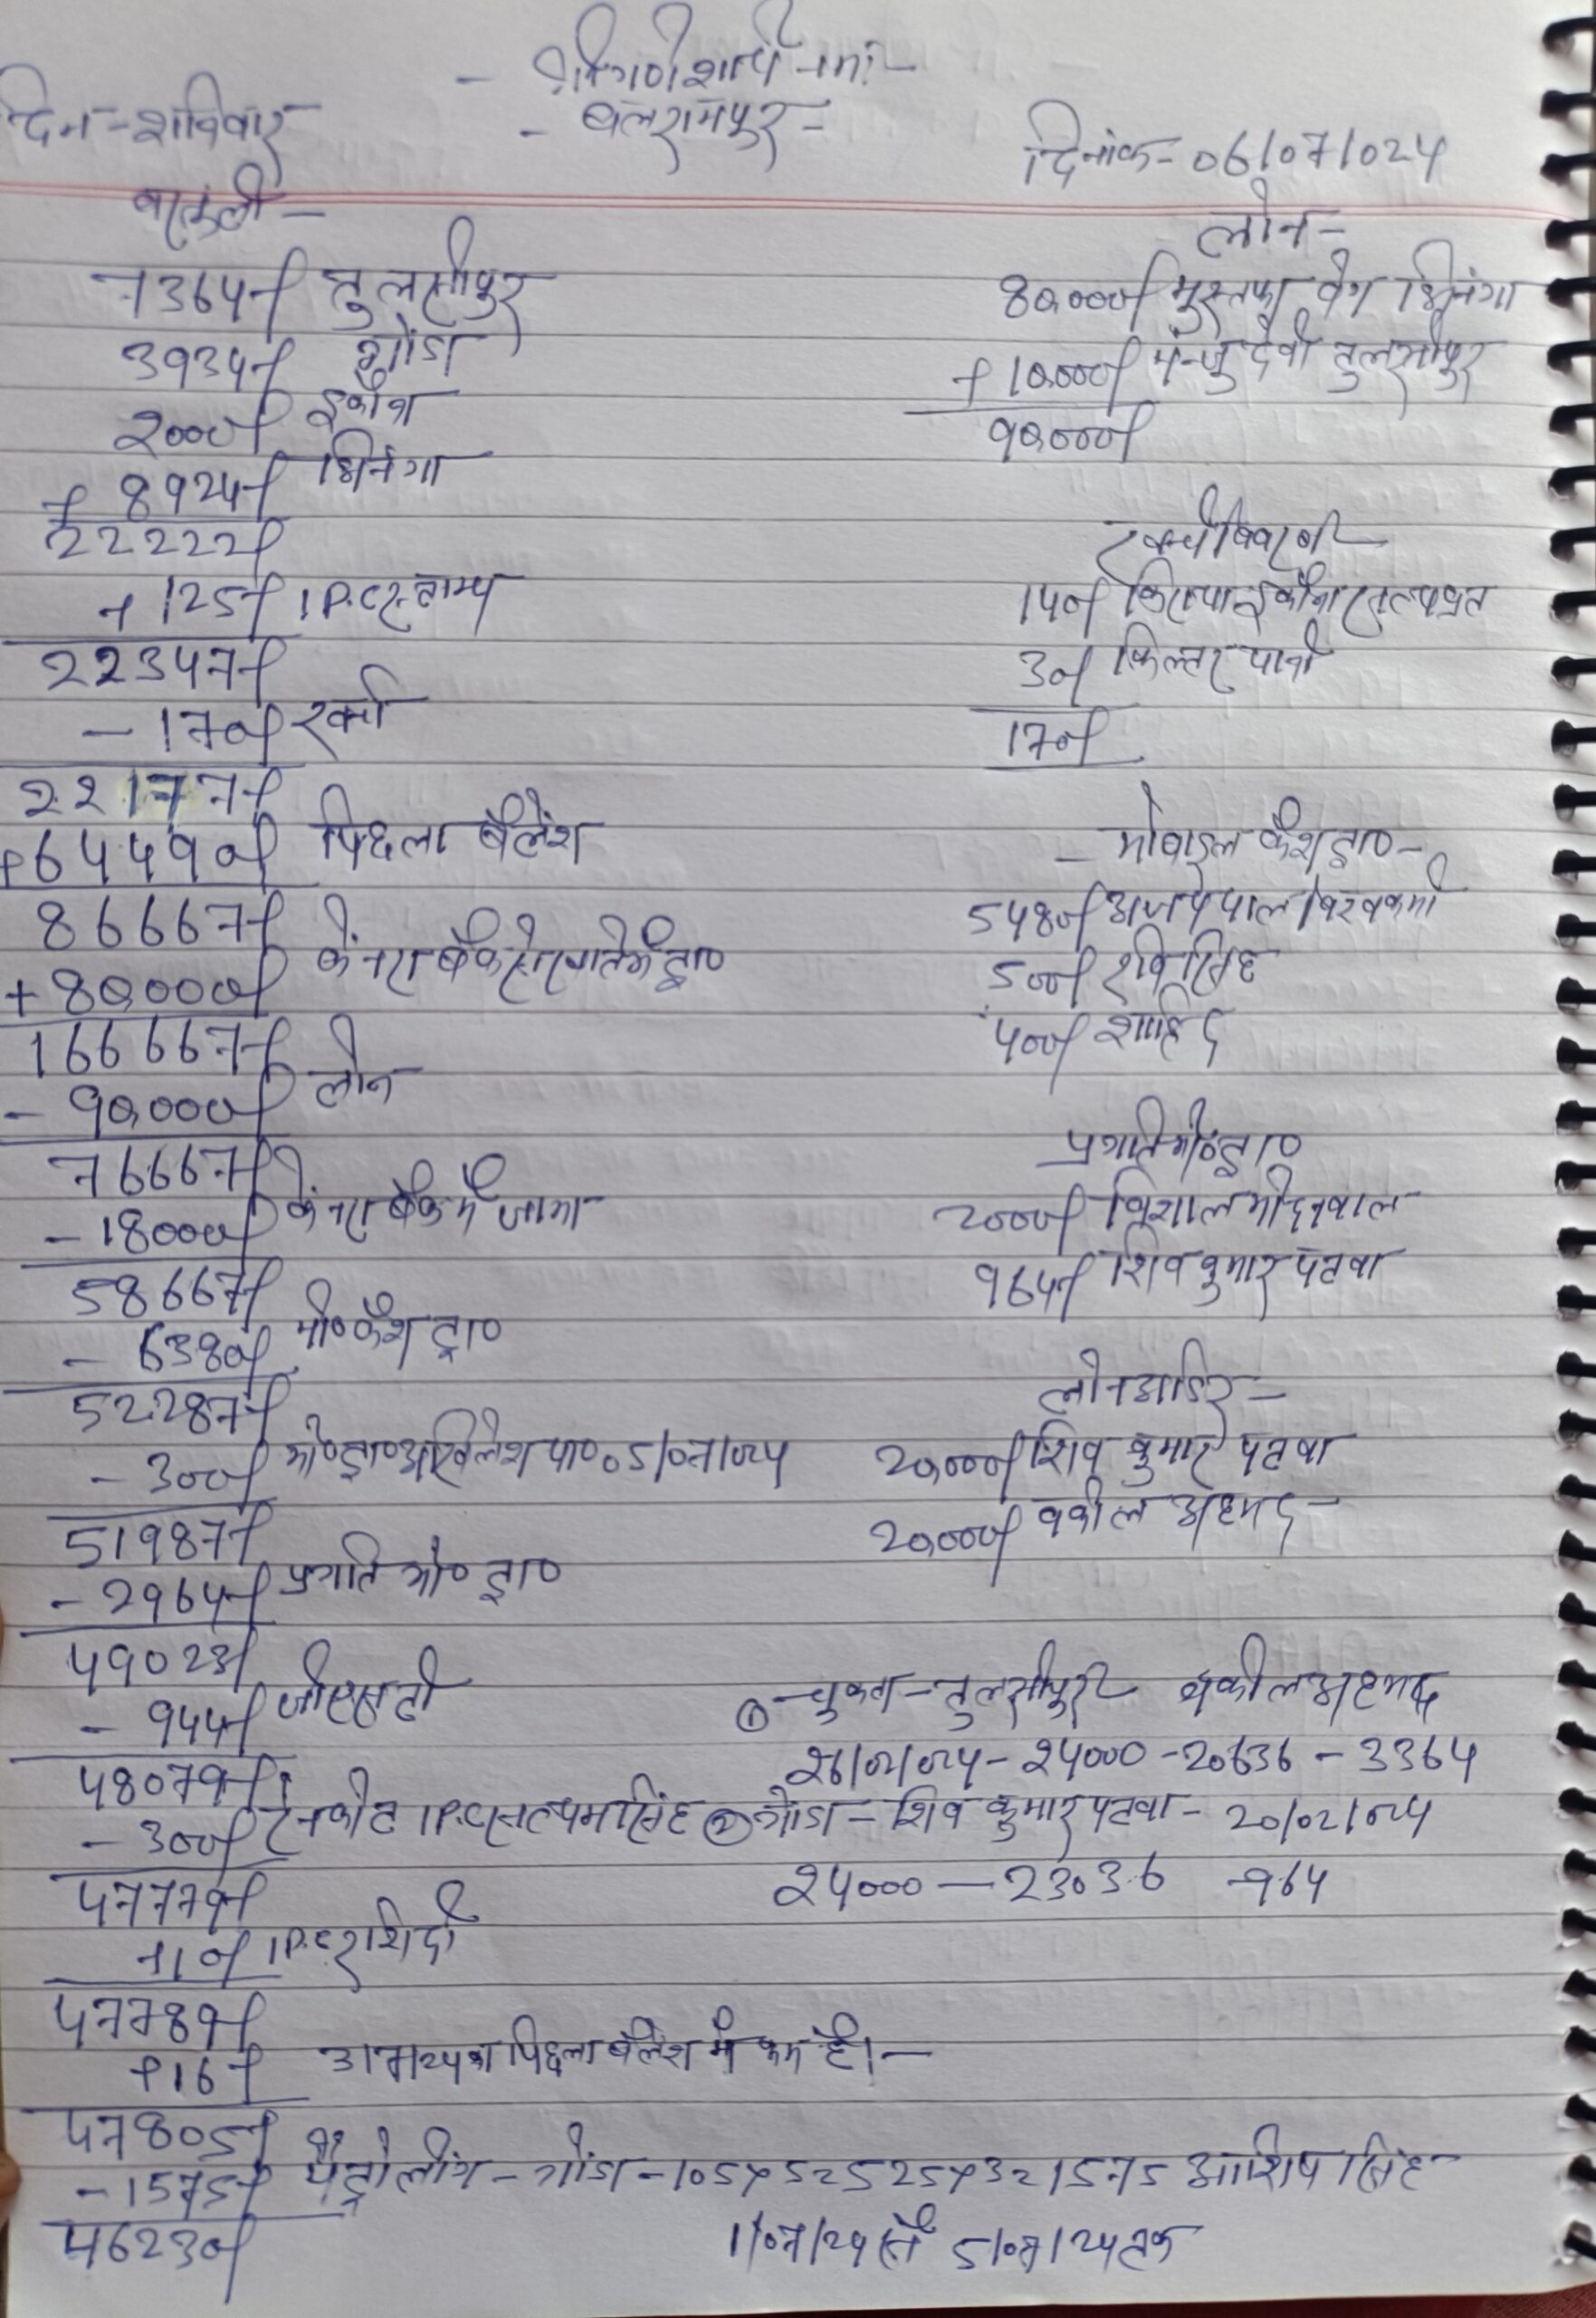 - श्री गणेशाय नमः -
- बलरामपुर -
दिन - शनिवार
दिनांक - 06/07/024
वसूली -
7364/- तुलसीपुर
3934/- गोंडा
2000/- इकौना
+ 8924/- भिनंगा
22222/-
+ 125/- I.P.C स्टाम्प
22347/-
- 170/- खर्चा
22177/-
+64490/- पिछला बैलेंश
86667/-
+ 80,000/- केंनरा बैंक से खाते में ट्रा०
166667/-
- 90,000/- लोन
76667/-
- 18000/- केंनरा बैंक में जामा
58667/-
- 6380/- मो० कैश ट्रा०
52287/-
- 300/- मो० ट्रा० अखिलेश पा० 05/07/024
51987/-
- 2964/- प्रगति मो० ट्रा०
49023/-
- 944/- जीएसटी
48079/-
- 300/- रेनकोट I.P.C सत्यम सिंह
47779/-
+10/- I.P.C रशिदी
47789/-
+16/- का पिछला बैलेंश में कम है।-
47805/-
- 1575/- पैट्रोलींग - गोंडा - 105×5 = 525 525×3 = 1575 आशिष सिंह
46230/- 1/07/24 से 5/07/24 तक
लोन -
80,000/- मुस्तफा वेग भिनंगा
+ 10,000/- मन्जु देवी तुलसीपुर
90,000/-
खर्चा विवरण -
140/- किराया इकौना सत्यव्रत
30/- फिल्टर पानी
170/-
- मोबाइल कैश ट्रा० -
5480/- अजय पाल विश्वकर्मा
500/- रवि सिंह
400/- शाहिद
प्रगति मो० ट्रा०
2000/- विशाल मोदनवाल
964/- शिव कुमार पटवा
लोन आर्डर -
20,000/- शिव कुमार पटवा
20,000/- वकील अहमद -
① - चुकता - तुलसीपुर वकील अहमद
26/02/024 - 24000 - 20636 - 3364
② गोंडा - शिव कुमार पटवा - 20/02/024
24000 - 23036 - 964